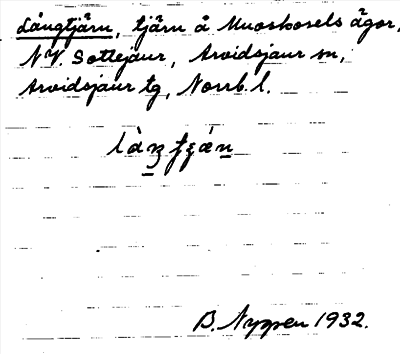 Långtjärn, tjärn å Muoskosels ägor,
NV. Sottejaur, Arvidsjaur sn,
Arvidsjaur tg, Norrb. l.
B. Nyppen 1932.